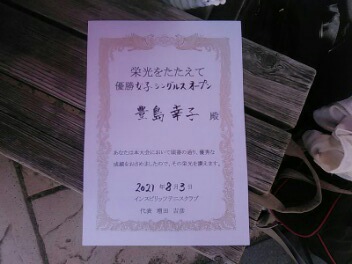 栄光をたたえて
優勝女子シングルスオープン
豊島幸子 殿
あなたは本大会において頭書の通り、優秀な
成績をおさめましたので、その栄光を讃えます。
2021年8月3日
インスピリッツテニスクラブ
代表 増田 吉彦